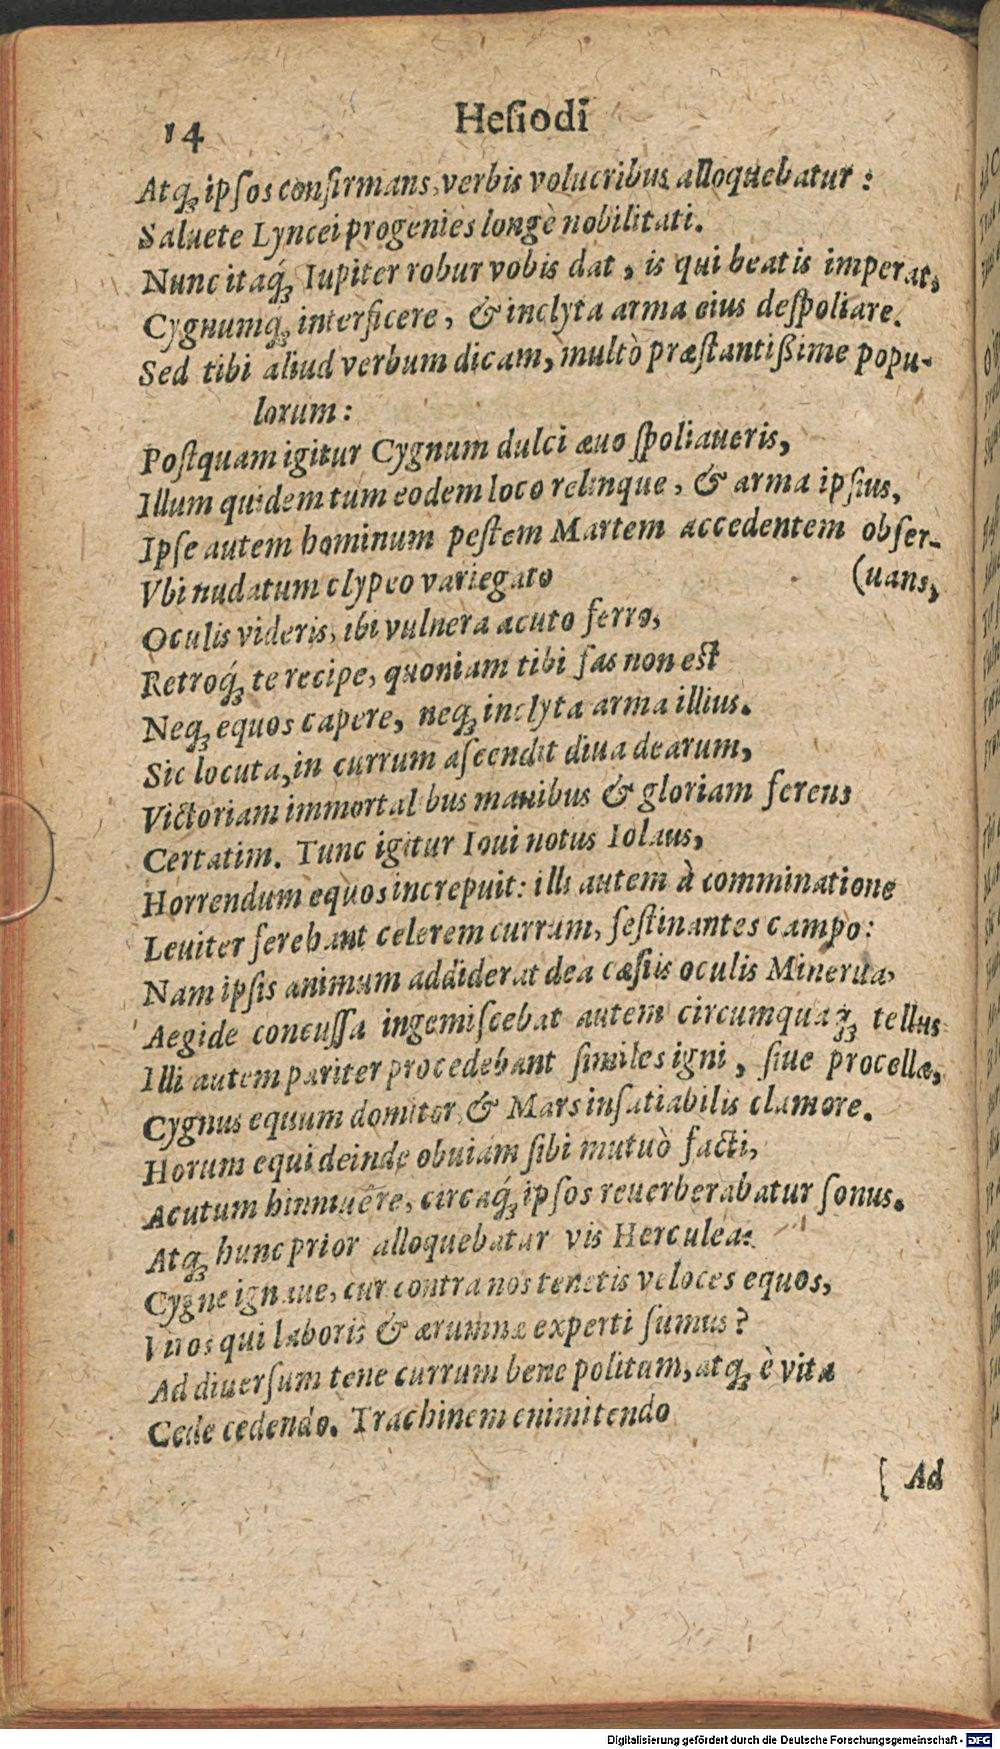 14 Heſiodi
Atq́ꝫ ipſos confirmans, verbis volucribus alloquebatur:
Saluete Lyncei progenies longè nobilitati.
Nunc itaq́ꝫ Iupiter robur vobis dat, is qui beatis imperat,
Cygnumq́ꝫ interficere, & inclyta arma eius deſpoliare.
Sed tibi aliud verbum dicam, multò præſtantißime popu-
lorum:
Poſtquam igitur Cygnum dulci æuo ſpoliaueris,
Illum quidem tum eodem loco relinque, & arma ipſius,
Ipſe autem hominum peſtem Martem accedentem obſer-
Vbi nudatum clypeo variegato (uans,
Oculis videris, ibi vulnera acuto ferro,
Retroq́ꝫ te recipe, quoniam tibi fas non eſt
Neqꝫ equos capere, neqꝫ inclyta arma illius.
Sic locuta, in currum aſcendit diua dearum,
Victoriam immortal bus manibus & gloriam ferens
Certatim. Tunc igitur Ioui notus Iolaus,
Horrendum equos increpuit: illi autem à comminatione
Leuiter ferebant celerem currum, feſtinantes campo:
Nam ipſis animum addiderat dea cæſiis oculis Minerua,
Aegide concuſſa ingemiſcebat autem circumquaqꝫ tellus
Illi autem pariter procedebant ſimiles igni, ſiue procellæ,
Cygnus equum domitor, & Mars inſatiabilis clamore.
Horum equi deinde obuiam ſibi mutuò facti,
Acutum hinniuêre, circaq́ꝫ ipſos reuerberabatur ſonus.
Atqꝫ hunc prior alloquebatur vis Herculea:
Cygne ignaue, cur contra nos tenetis veloces equos,
Viros qui laboris & ærumnæ experti ſumus?
Ad diuerſum tene currum bene politum, atqꝫ è vita
Cede cedendo. Trachinem enim itendo
[ Ad
Digitalisierung gefördert durch die Deutsche Forschungsgemeinschaft - DFG